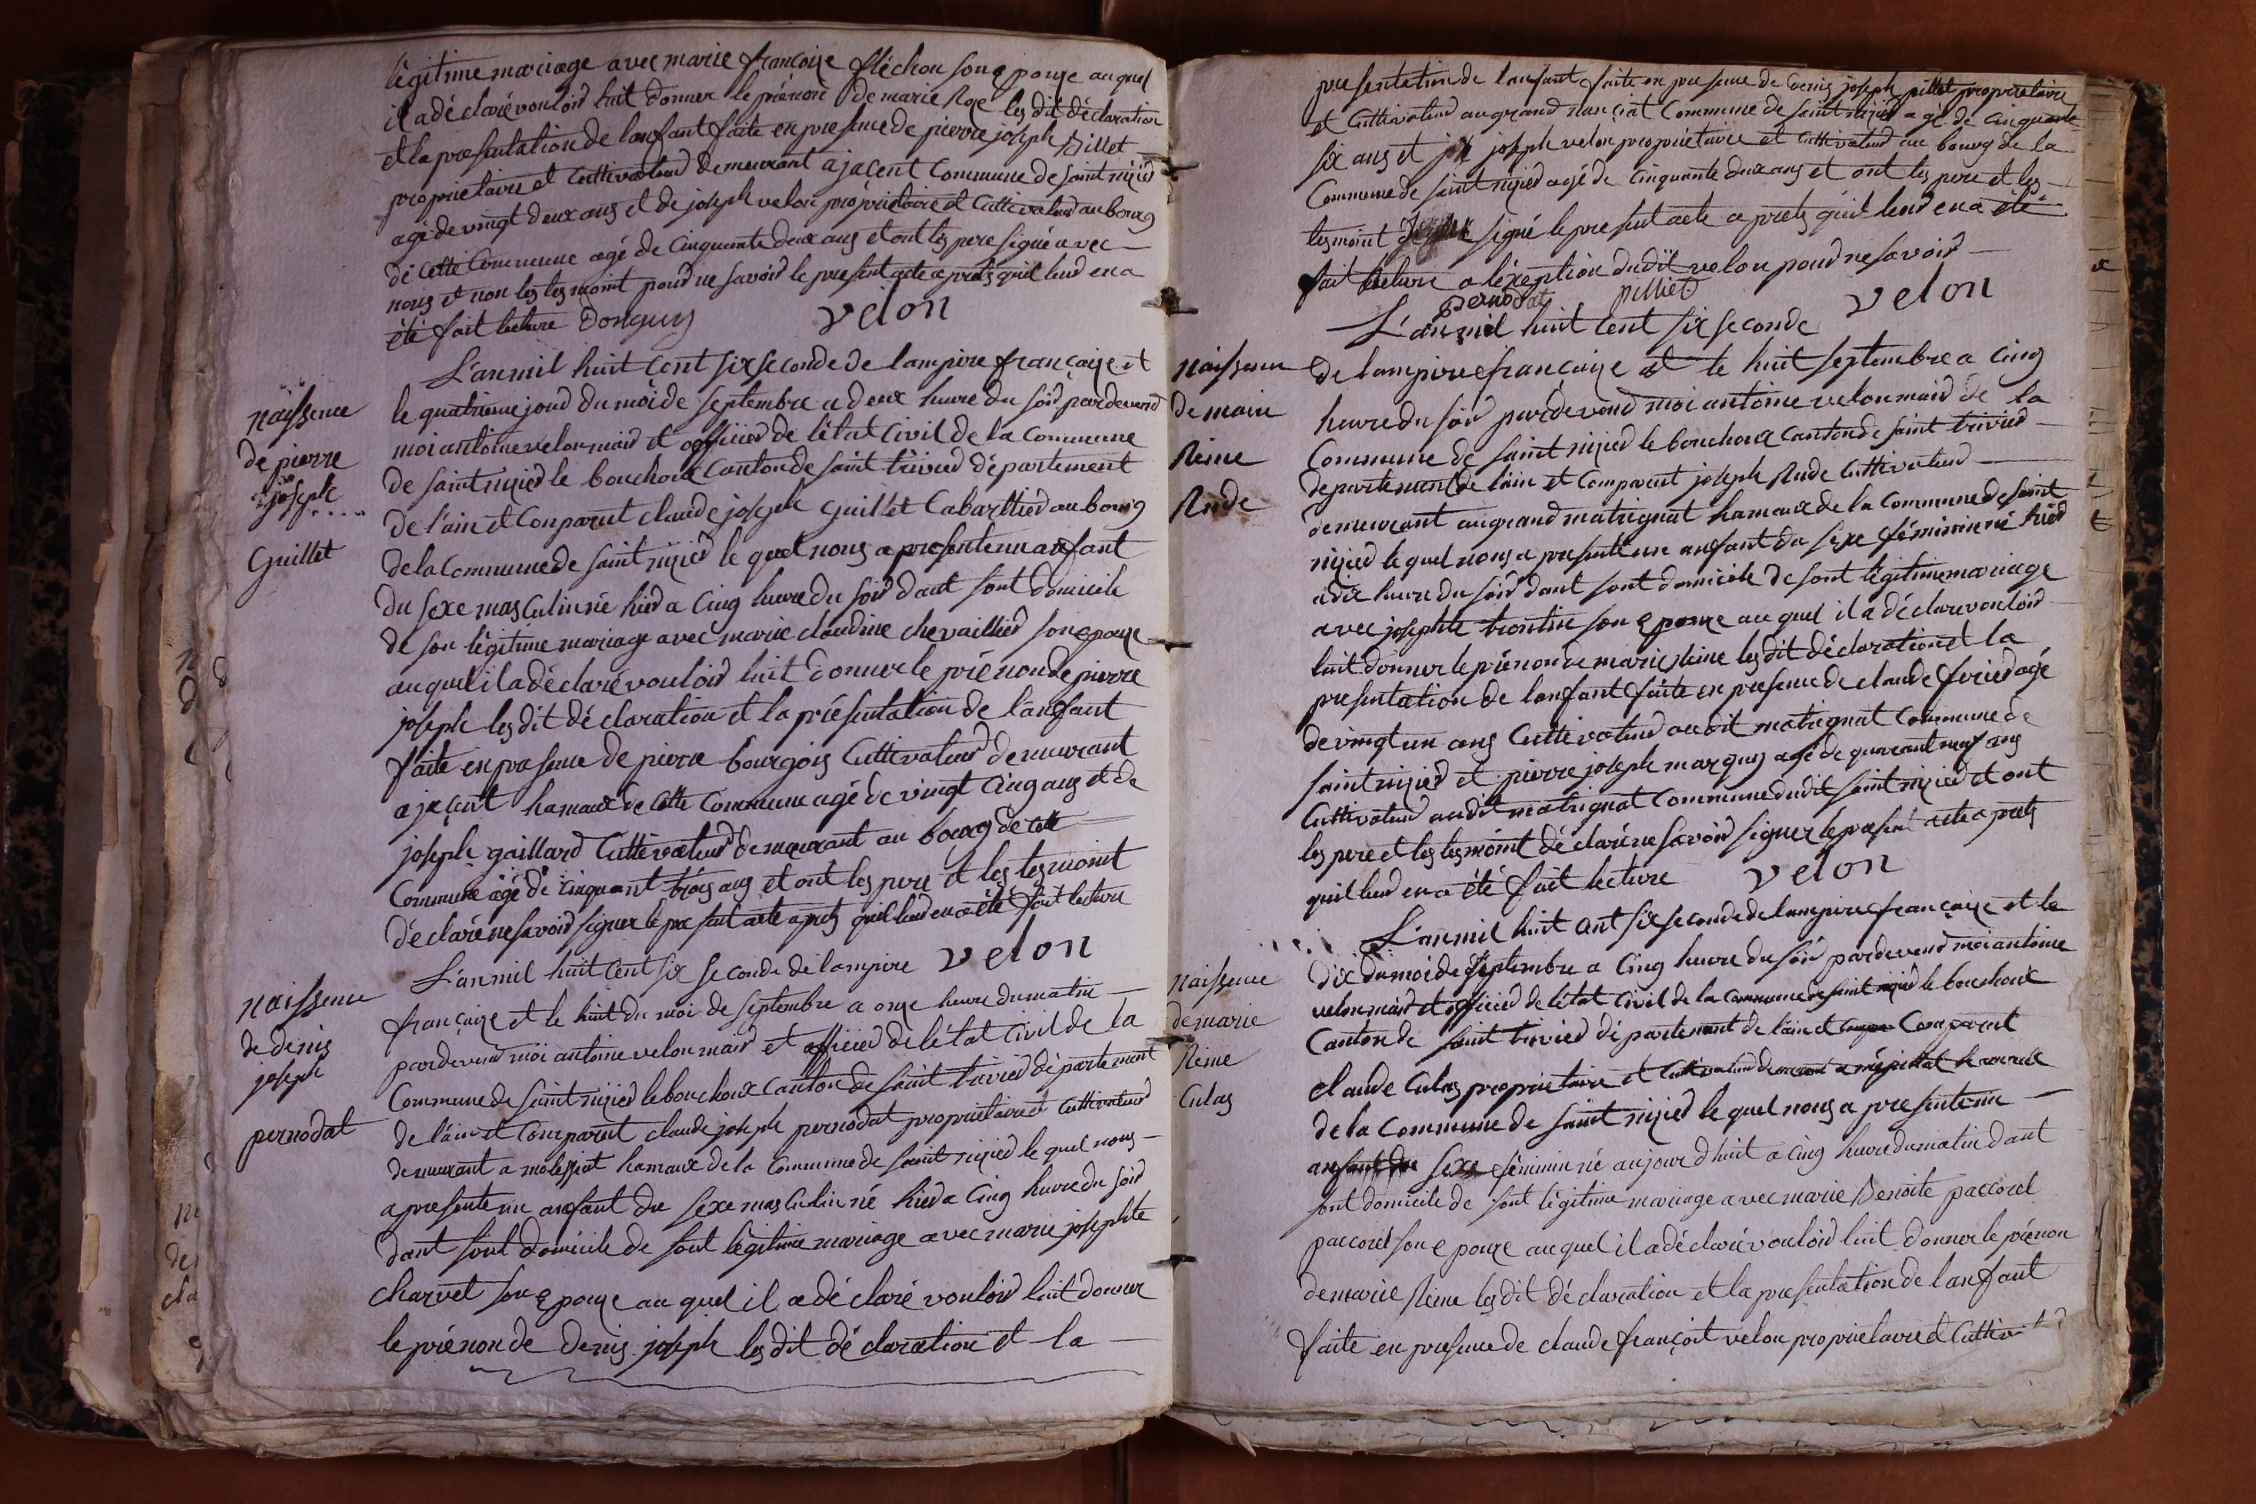 légitime mariage avec marie françoise fléchon son epouze au quel
il a déclaré vouloir luit donner le prénon de marie Roze les dit déclaration
et la presentation de lanfant faite en presence de pierre joseph Billet
proprietaire et Cuttivateur demeurant a jacent Commune de saint nizier
agé de vingt deux ans et de joseph velon propriétaire et Cuttivateur au bourg
de Cette Commune agé de Cinquante deux ans et ont les pere signé avec
nous et non les tesmoint pour ne savoir le present acte a prets quil leur en a
été fait lecture Donguy velon
L'an mil huit Cent six seconde de lampire françaize et
naissence
de pierre
joseph
Guillet
le quatrieme jour du moi de septembre a deux heure du soir pardevend
moi antoine velon maire et officier de l'état Civil de la Commune
de saint nizier le bouchoux Canton de saint trivier département
de l'ain et Conparut claude joseph Guillet Cabarettier au bourg
de la Commune de saint nizier le quel nous a presente un anfant
du sexe mas Culin né hier a Cinq heure du soir dant sont domicile
de son légitime mariage avec marie claudine chevaillier son epouze
au quel il a déclaré vouloir luit donner le prénon de pierre
joseph les dit déclaration et la présentation de l'anfant
faite en presence de pierre bourgois Cuttivateur demeurant
a jacent hamaux de Cette Commune agé de vingt Cinq ans et de
joseph gaillard Cuttivateur demeurant au bourg de Cette
Commune agé de Cinquant trois ans et ont les pere et les tesmoint
déclaré ne savoir signer le present acte a prets quil leur en a été fait lecture
L'an mil huit Cent six seconde de lampire velon
naissence
de denis
joseph
pernodat
françaize et le huit du moi de septembre a onze heure du matin
pardevend moi antoine velon maire et officier de l'état Civil de la
Commune de saint nizier le bouchoux Canton de saint trivier département
de l'ain et Comparut claude joseph pernodat propriétaire et Cuttivateur
demeurant a molessiat hamaux de la Commune de saint nizier le quel nous
a presente un anfant du sexe mas Culin né hier a Cinq heure du soir
dant sont domicile de sont légitime mariage avec marie josephte
charvet son epouze au quel il a déclaré vouloir luit donner
le prénon de Denis joseph les dit déclaration et la
presentation de lanfant faite en presence de Denis joseph pillet proprietaire
et Cuttivateur au grand nanciat Commune de saint nizier agé de Cinquante
six ans et joseph velon propriétaire et Cuttivateur au bourg de la
Commune de saint nizier agé de Cinquante deux ans et ont les pere et les
tesmoint signé le present acte a prets quil leur en a été
fait lecture a l'exeption dudit velon pour ne savoir
pernodat pilliet velon
L'an mil huit Cent six seconde
naissence
de marie
Reine
Rude
de lampire françaize et le huit septembre a Cinq
heure du soir pardevend moi antoine velon mair de la
Commune de saint nizier le bouchoux Canton de saint trivier
département de l'ain et Comparut joseph Rude Cuttivateur
demeurant au grand matrignat hamaux de la Commune de saint
nizier le quel nous a presente un anfant du sexe féminin né hier
a dix heure du soir dant sont domicile de sont légitime mariage
avec josephte trontin son epouze au quel il a déclaré vouloir
luit donner le prénon de marie Reine les dit déclaration et la
presentation de lanfant faite en presence de claude ferier agé
de vingt un ans Cuttivateur audit matrignat Commune de
saint nizier et pierre joseph marguy agé de quarant neuf ans
Cuttivateur audit matrignat Commune dudit saint nizier et ont
les pere et les tesmoint déclaré ne savoir signer le present acte a prets
quil leur en a été fait lecture velon
L'an mil huit Cent six seconde de lampire françaize et le
naissence
de marie
Reine
Culas
dix du moi de septembre a Cinq heure du soir pardevend moi antoine
velon mair et officier de l'état Civil de la Commune de saint nizier le bouchoux
Canton de saint trivier département de l'ain et Comparut
claude Culas proprietaire et Cuttivateur demeurant a hamaux
de la Commune de saint nizier le quel nous a presente un
anfant du sexe féminin né aujour dhuit a Cinq heure du matin dant
sont domicile de sont légitime mariage avec marie Benoite paccoret
paccoret son epouze au quel il a déclaré vouloir luit donner le prénon
de marie Reine les dit déclaration et la presentation de lanfant
faite en presence de claude françoit velon proprietaire et